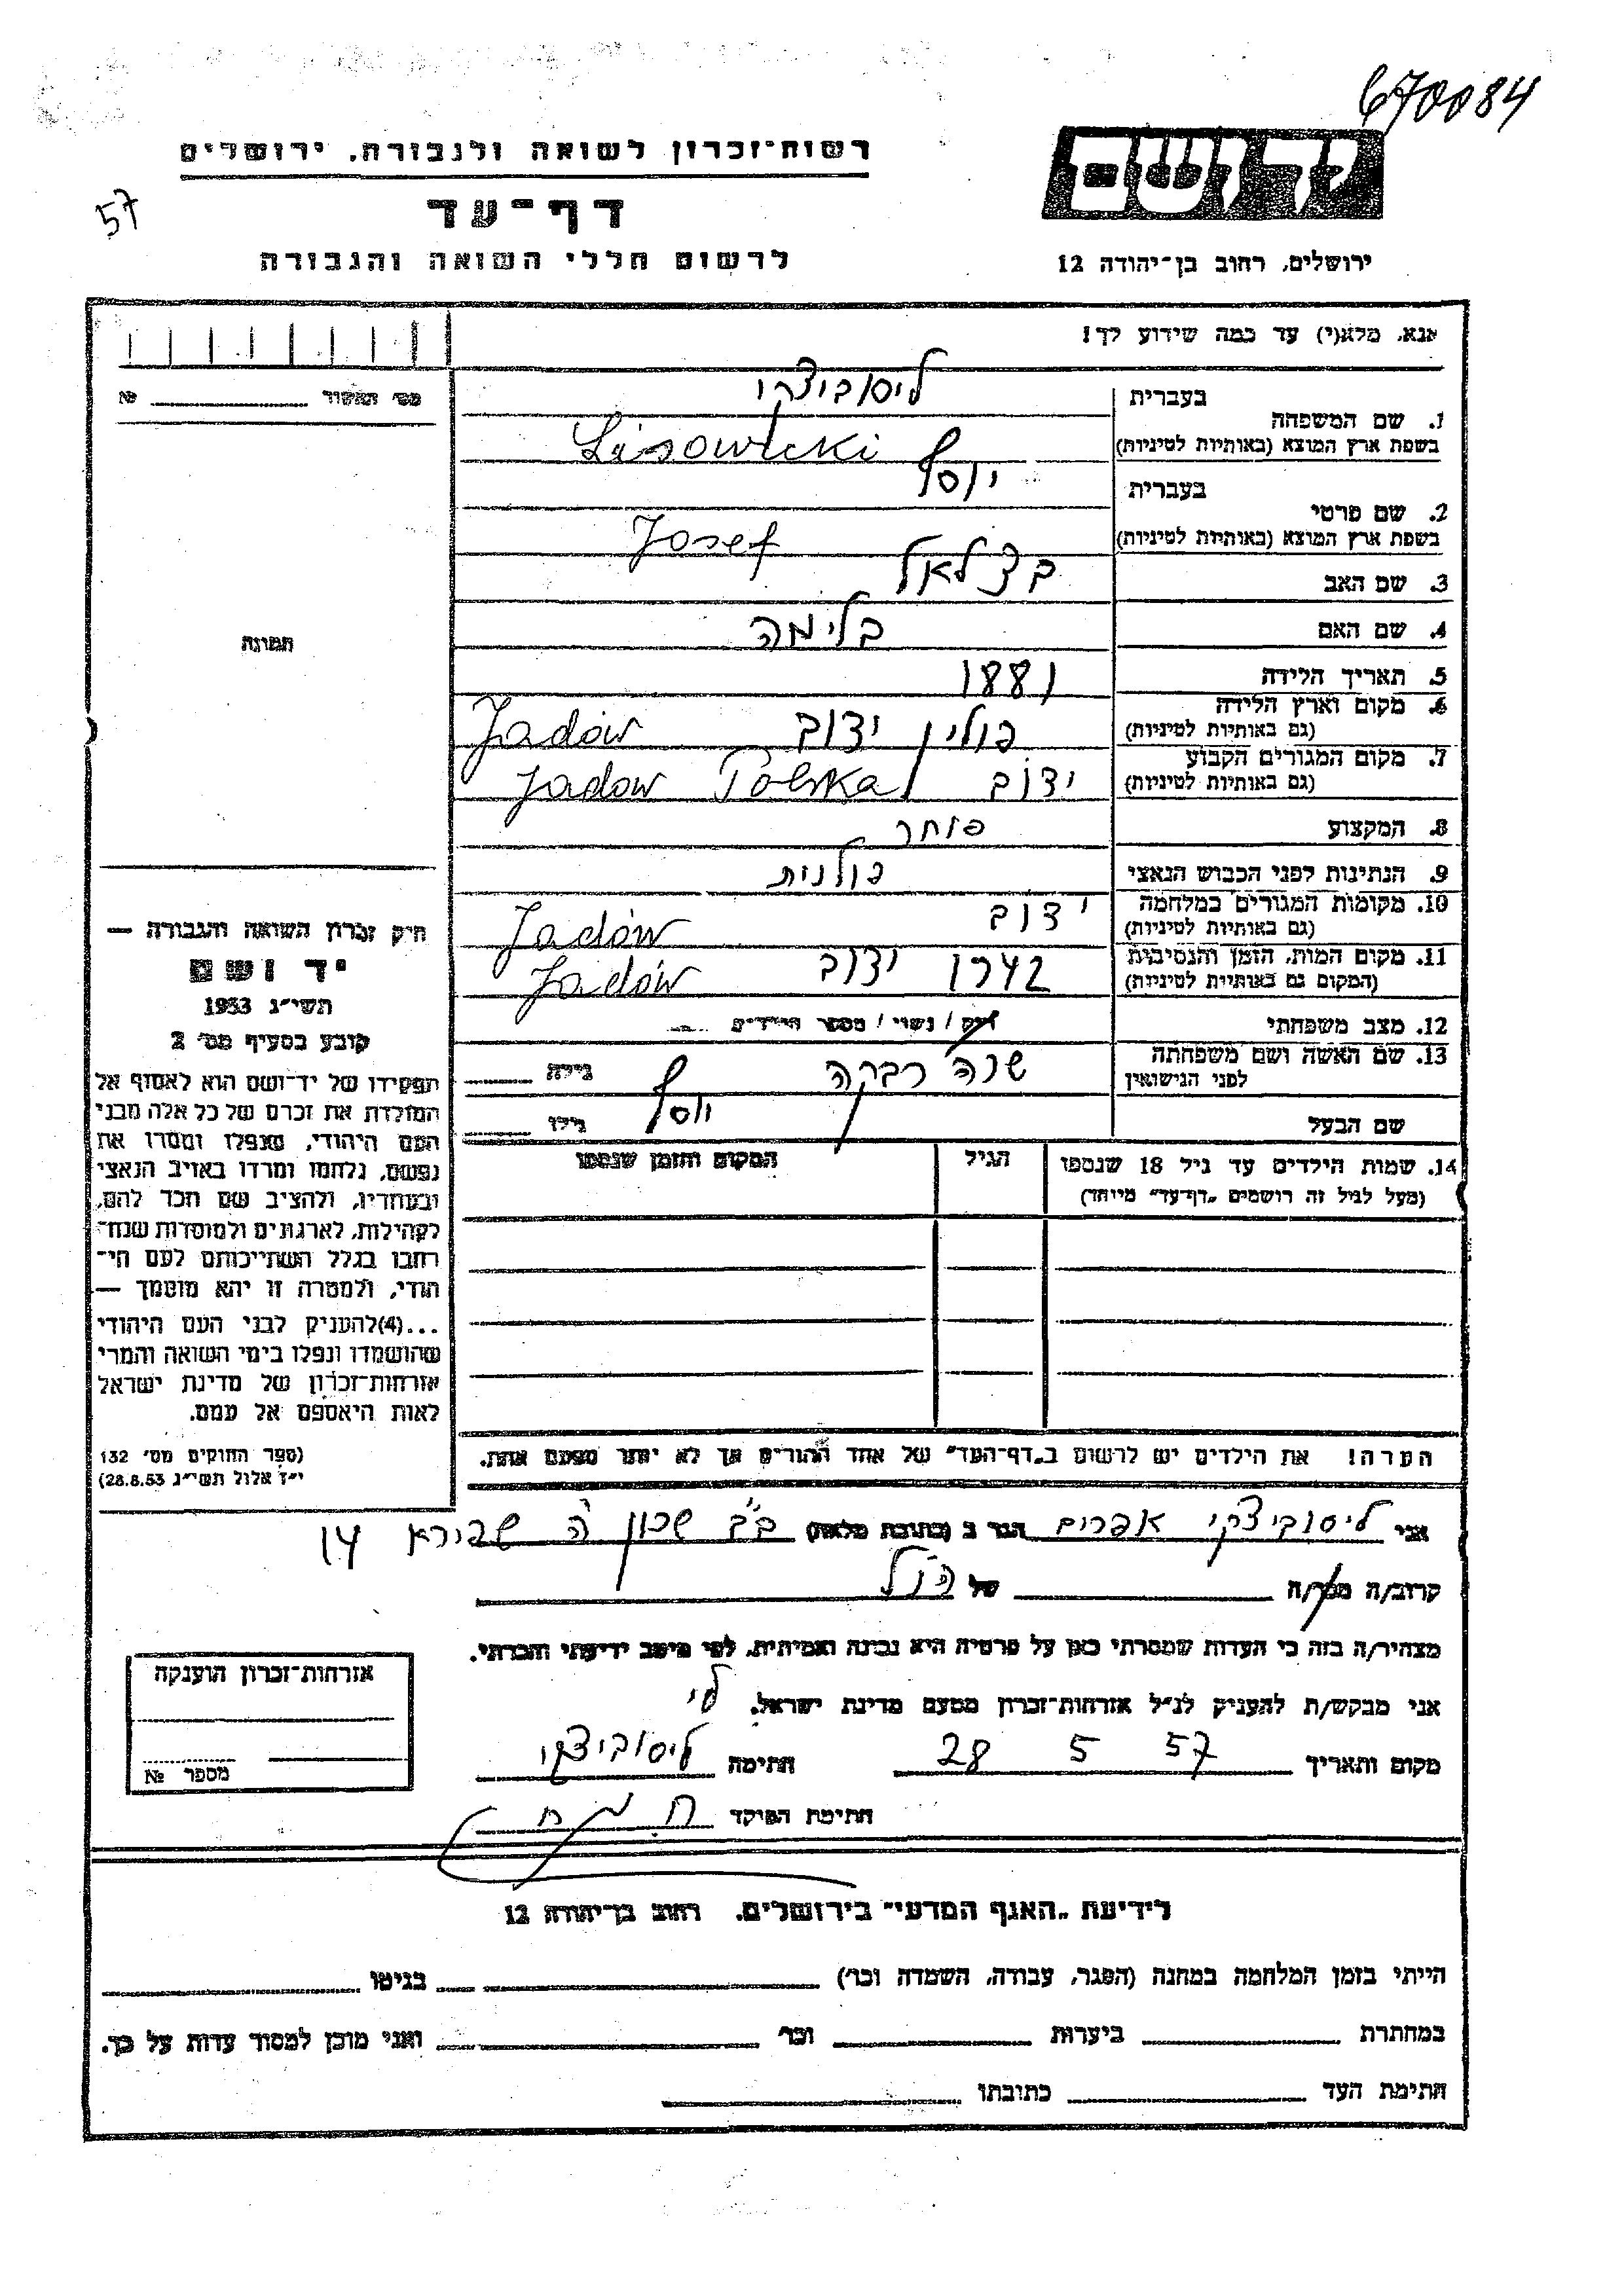 670084
רשות־זכרון לשואה ולגבורה, ירושלים
ידושם
57
דף־עד
לרשום חללי השואה והגבורה
ירושלים, רחוב בן־יהודה 12
אנא, מלא(י) עד כמה שידוע לך!
מס׳ האשור № ______
1. שם המשפחה בעברית ליסוביצקי
בשפת ארץ המוצא (באותיות לטיניות) Lisowicki
2. שם פרטי בעברית יוסף
בשפת ארץ המוצא (באותיות לטיניות) Josef
3. שם האב בצלאל
4. שם האם בלימה
5. תאריך הלידה 1881
6. מקום וארץ הלידה (גם באותיות לטיניות) פולין ידוב Jadów
7. מקום המגורים הקבוע (גם באותיות לטיניות) ידוב Jadów Polska
8. המקצוע סוחר
9. הנתינות לפני הכבוש הנאצי פולנית
10. מקומות המגורים במלחמה (גם באותיות לטיניות) ידוב Jadów
11. מקום המות, הזמן והנסיבות (המקום גם באותיות לטיניות) ידוב Jadów
12. מצב משפחתי רוק / נשוי / מספר הילדים
13. שם האשה ושם משפחתה לפני הנישואין שרה רבקה גילה
שם הבעל יוסף גילו
14. שמות הילדים עד גיל 18 שנספו הגיל המקום והזמן שנספו
(מעל לגיל זה רושמים „דף־עד״ מיוחד)
תמונה
חוק זכרון השואה והגבורה —
יד ושם
תשי״ג 1953
קובע בסעיף מס׳ 2
תפקידו של יד־ושם הוא לאסוף אל
המולדת את זכרם של כל אלה מבני
העם היהודי, שנפלו ומסרו את
נפשם, נלחמו ומרדו באויב הנאצי
ובעוזריו, ולהציב שם וזכר להם,
לקהילות, לארגונים ולמוסדות שנח־
רבו בגלל השתייכותם לעם הי־
הודי, ולמטרה זו יהא מוסמך —
...(4) להעניק לבני העם היהודי
שהושמדו ונפלו בימי השואה והמרי
אזרחות־זכרון של מדינת ישראל
לאות היאספם אל עמם.
(ספר החוקים מס׳ 132
י״ז אלול תשי״ג 28.8.53)
הערה! את הילדים יש לרשום ב„דף־העד״ של אחד ההורים אך לא יותר מפעם אחת.
אני ליסוביצקי אפרים הגר ב (כתובת מלאה) ב״ב שכון ה שפירא 14
קרוב/ה מכר/ה של הנ״ל
מצהיר/ה בזה כי העדות שמסרתי כאן על פרטיה היא נכונה ואמיתית, לפי מיטב ידיעתי והכרתי.
אני מבקש/ת להעניק לנ״ל אזרחות־זכרון מטעם מדינת ישראל.
מקום ותאריך 28 5 57 חתימה ליסוביצקי
חתימת הפוקד
אזרחות־זכרון הוענקה
מספר №
לידיעת „האגף המדעי״ בירושלים, רחוב בן־יהודה 12
הייתי בזמן המלחמה במחנה (הסגר, עבודה, השמדה וכו׳) ______ בגיטו ______
במחתרת ______ ביערות ______ וכו׳ ______ ואני מוכן למסור עדות על כך.
חתימת העד ______ כתובתו ______